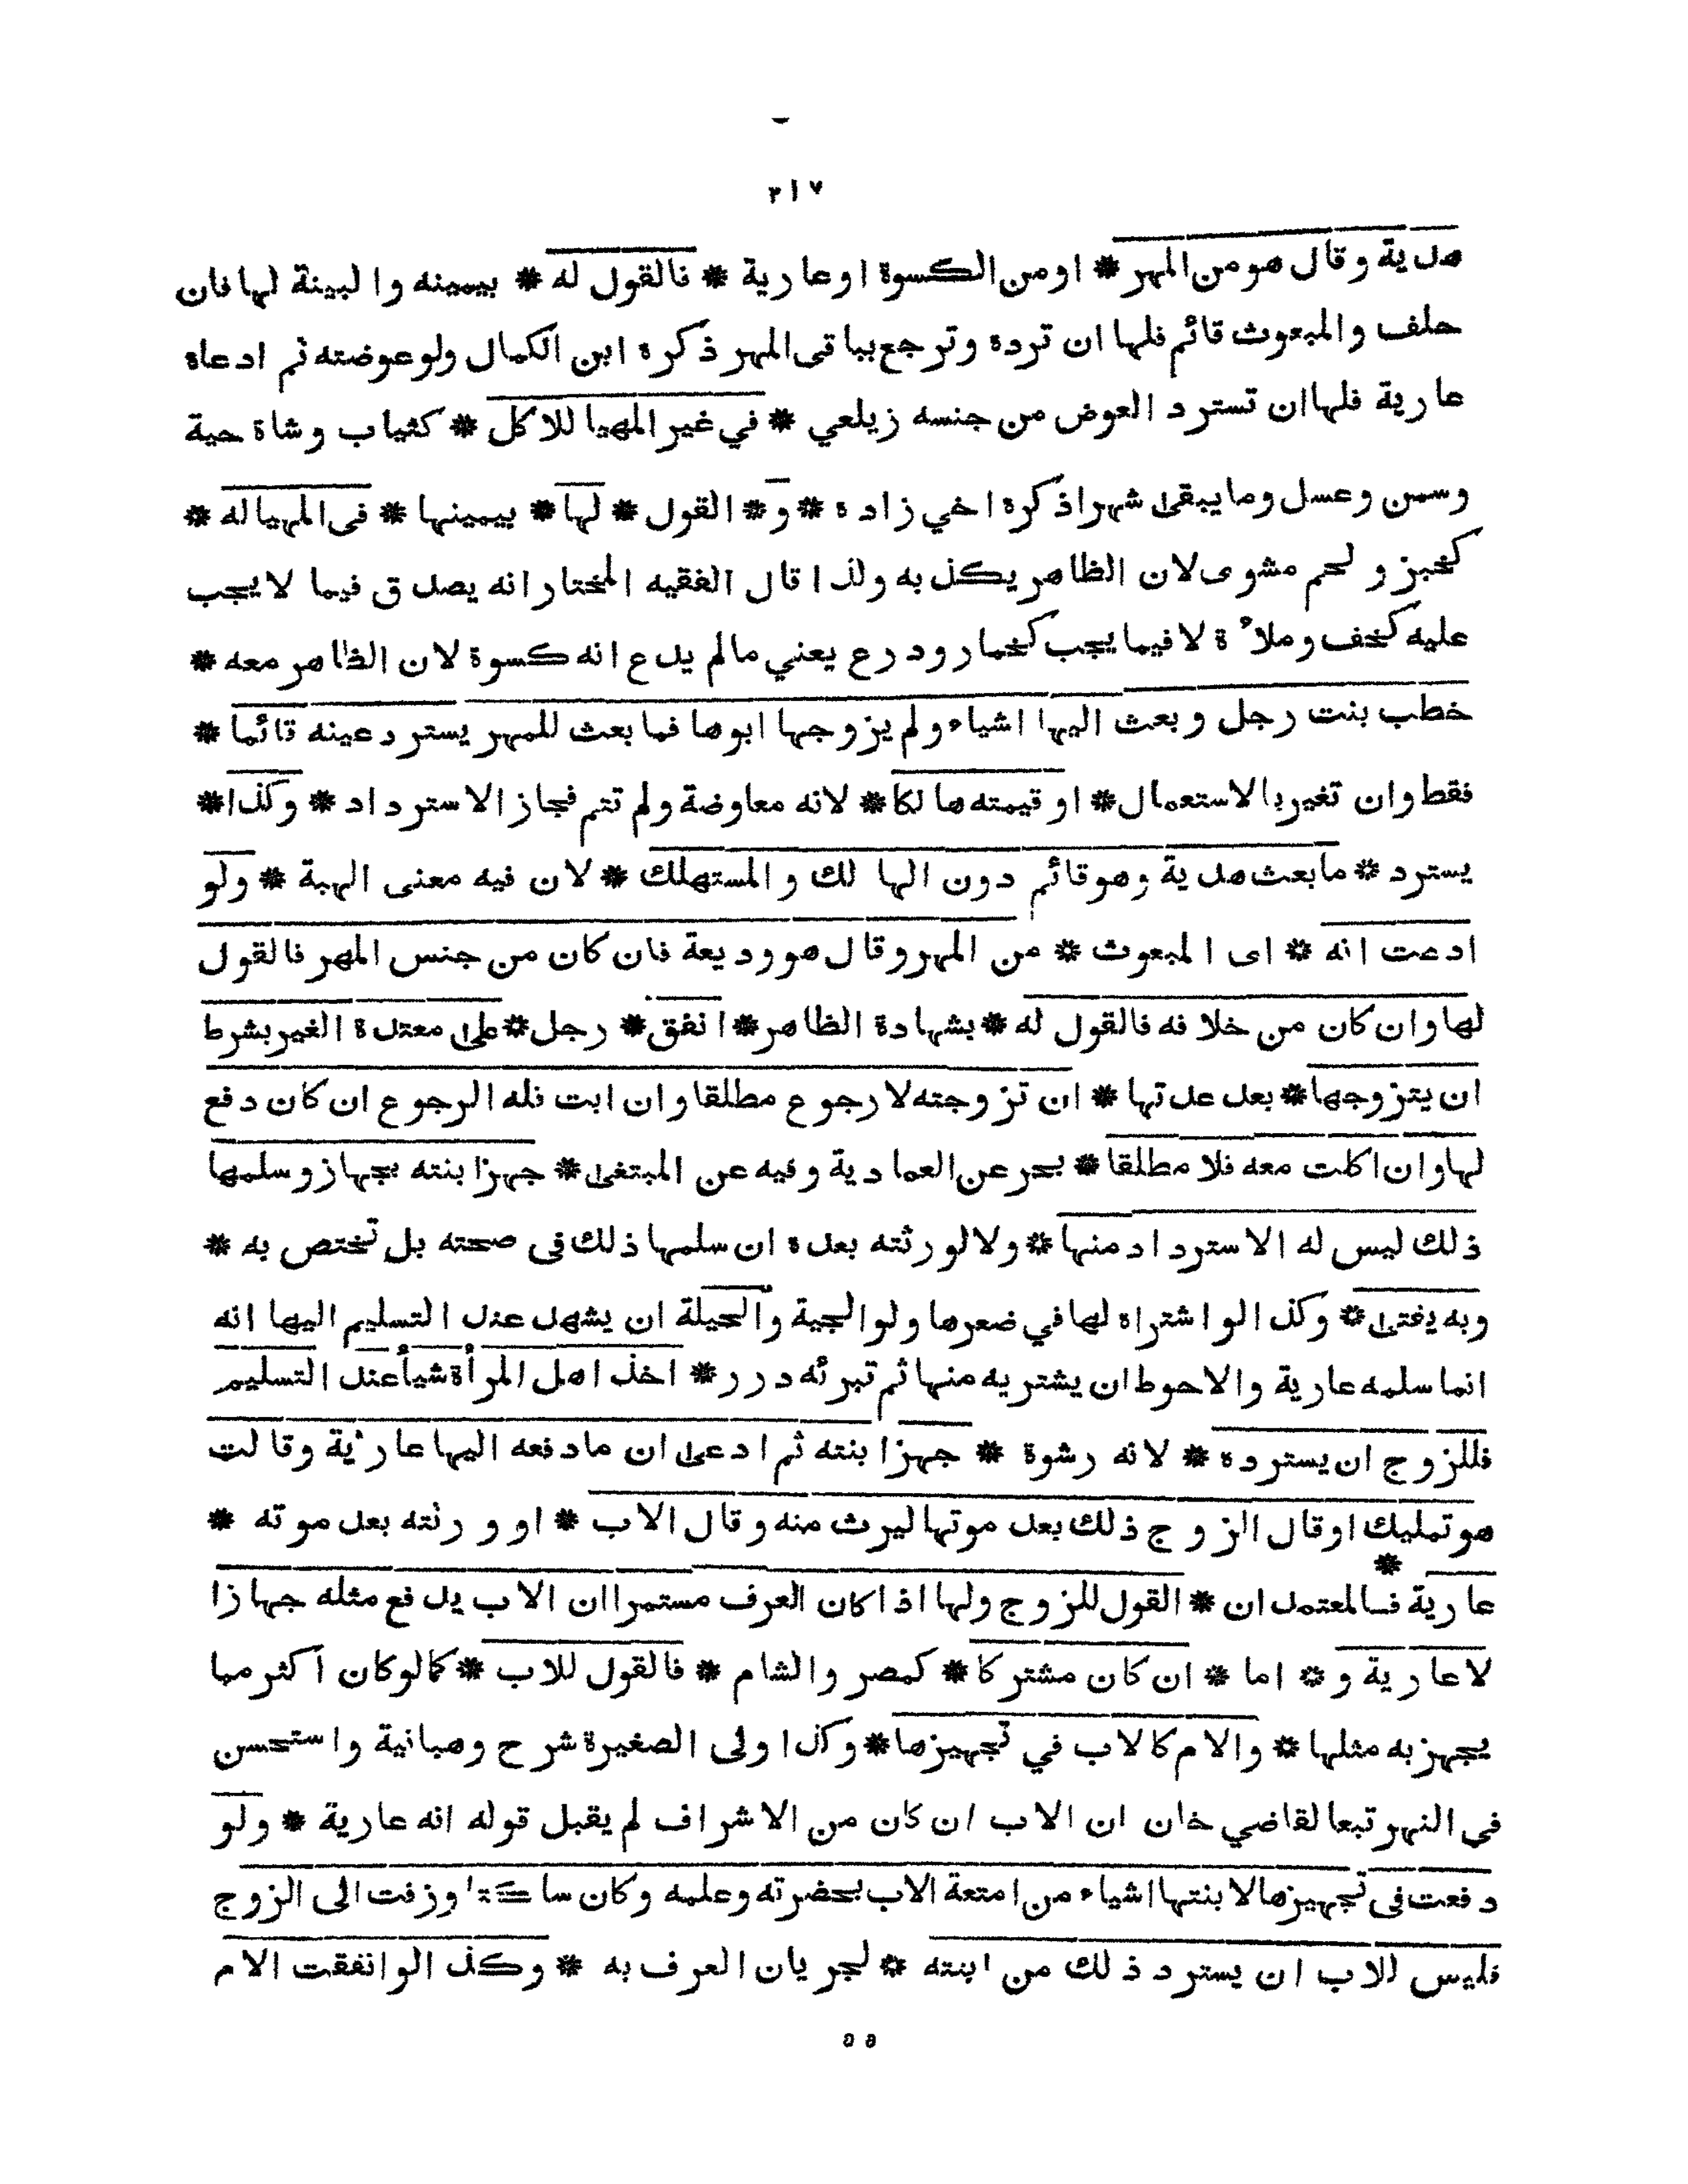 ٣١٧
هدية وقال هو من المهر * او من الكسوة او عارية * فالقول له * بيمينه والبينة لها فان
حلف والمبعوث قائم فلها ان ترده وترجع بباقى المهر ذكره ابن الكمال ولو عوضته ثم ادعاه
عارية فلها ان تسترد العوض من جنسه زيلعي * في غير المهيا للاكل * كثياب وشاة حية
وسمن وعسل وما يبقى شهرا ذكره اخي زاده * و * القول * لها * بيمينها * فى المهيا له *
كخبز و لحم مشوى لان الظاهر يكذبه ولذا قال الفقيه المختار انه يصدق فيما لا يجب
عليه كخف وملاءة لا فيما يجب كخمار ودرع يعني مالم يدع انه كسوة لان الظاهر معه *
خطب بنت رجل وبعث اليها اشياء ولم يزوجها ابوها فما بعث للمهر يسترد عينه قائما *
فقط وان تغير بالاستعمال * او قيمته هالكا * لانه معاوضة ولم تتم فجاز الاسترداد * وكذا *
يسترد * مابعث هدية وهو قائم دون الهالك والمستهلك * لان فيه معنى الهبة * ولو
ادعت انه * اى المبعوث * من المهر وقال هو وديعة فان كان من جنس المهر فالقول
لها وان كان من خلافه فالقول له * بشهادة الظاهر * انفق * رجل * على معتدة الغير بشرط
ان يتزوجها * بعد عدتها * ان تزوجته لا رجوع مطلقا وان ابت فله الرجوع ان كان دفع
لها وان اكلت معه فلا مطلقا * بحر عن العمادية وفيه عن المبتغى * جهز ابنته بجهاز وسلمها
ذلك ليس له الاسترداد منها * ولا لورثته بعده ان سلمها ذلك فى صحته بل تختص به *
وبه يفتى * وكذا لو اشتراه لها في ضعرها ولوالجية والحيلة ان يشهد عند التسليم اليها انه
انما سلمه عارية والاحوط ان يشتريه منها ثم تبرئه درر * اخذ اهل المرأة شيأ عند التسليم
فللزوج ان يسترده * لانه رشوة * جهز ابنته ثم ادعى ان مادفعه اليها عارية وقالت
هو تمليك او قال الزوج ذلك بعد موتها ليرث منه وقال الاب * او ورثته بعد موته *
عارية * فالمعتمد ان * القول للزوج ولها اذا كان العرف مستمرا ان الاب يدفع مثله جهازا
لا عارية و * اما * ان كان مشتركا * كمصر والشام * فالقول للاب * كمالو كان اكثر مما
يجهز به مثلها * والام كالاب في تجهيزها * وكذا ولى الصغيرة شرح وهبانية واستحسن
فى النهر تبعا لقاضي خان ان الاب ان كان من الاشراف لم يقبل قوله انه عارية * ولو
دفعت فى تجهيزها لابنتها اشياء من امتعة الاب بحضرته وعلمه وكان ساكتا وزفت الى الزوج
فليس للاب ان يسترد ذلك من ابنته * لجريان العرف به * وكذا لو انفقت الام